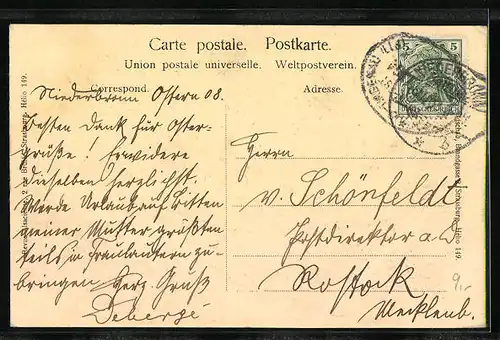 Carte postale. Postkarte.
Union postale universelle. Weltpostverein.
Correspond. Adresse.
Niederbronn Ostern 08.
Besten Dank für Oster-
grüße! Erwidere
dieselben herzlichst.
Werde Urlaub auf Bitten
meiner Mutter größten
teils in Fraulautern zu-
bringen Herz. Gruß
Herrn
v. Schönfeldt
Postdirektor a. D.
Rostock
Mecklenb.
5 5
9,-